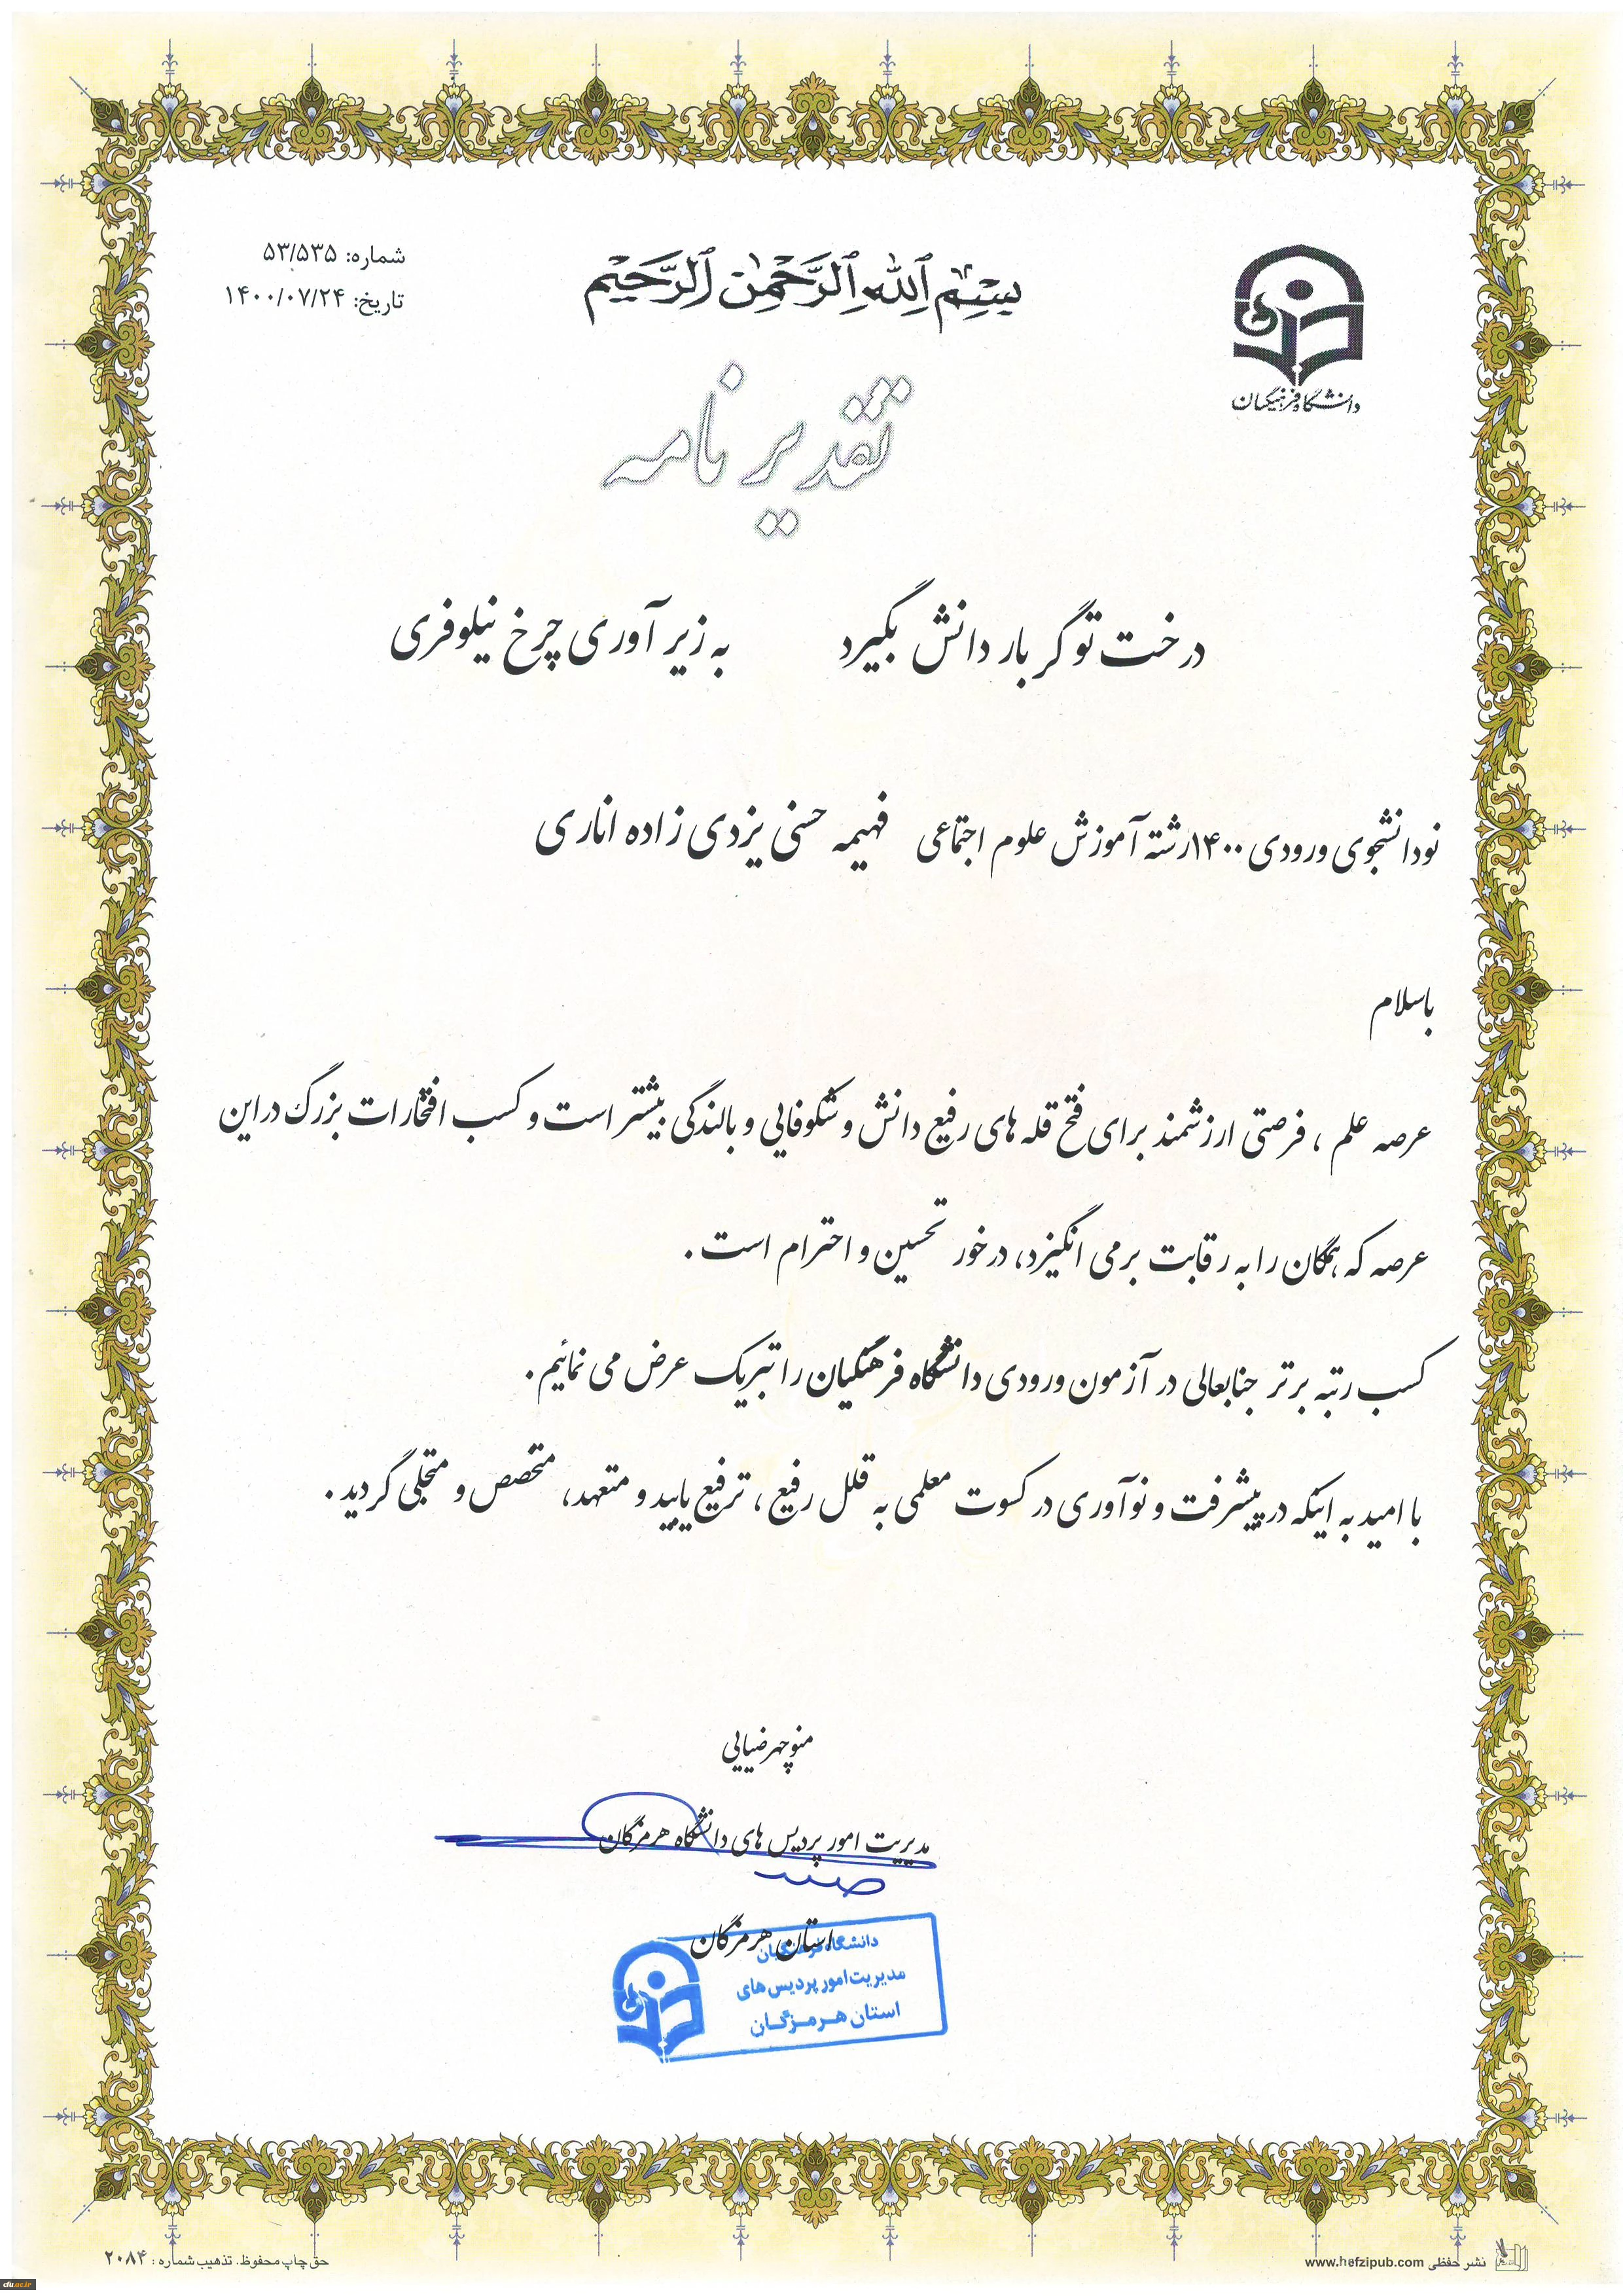 بسم الله الرحمن الرحیم
شماره: ۵۳/۵۳۵
تاریخ: ۱۴۰۰/۰۷/۲۴
دانشگاه فرهنگیان
تقدیر نامه
درخت تو گر بار دانش بگیرد به زیر آوری چرخ نیلوفری
نودانشجوی ورودی ۱۴۰۰رشته آموزش علوم اجتماعی فهیمه حسنی یزدی زاده اناری
باسلام
عرصه علم ، فرصتی ارزشمند برای فتح قله های رفیع دانش و شکوفایی و بالندگی بیشتر است و کسب افتخارات بزرگ در این
عرصه که همگان را به رقابت برمی انگیزد، درخور تحسین و احترام است .
کسب رتبه برتر جنابعالی در آزمون ورودی دانشگاه فرهنگیان را تبریک عرض می نمائیم .
با امید به اینکه در پیشرفت و نوآوری در کسوت معلمی به قلل رفیع ، ترفیع یابید و متعهد، متخصص و متجلی گردید .
منوچهر ضیایی
مدیریت امور پردیس های دانشگاه هرمزگان
استان هرمزگان
دانشگاه فرهنگیان
مدیریت امور پردیس های
استان هرمزگان
حق چاپ محفوظ. تذهیب شماره : ۲۰۸۴
نشر حفظی www.hefzipub.com
cfu.ac.ir